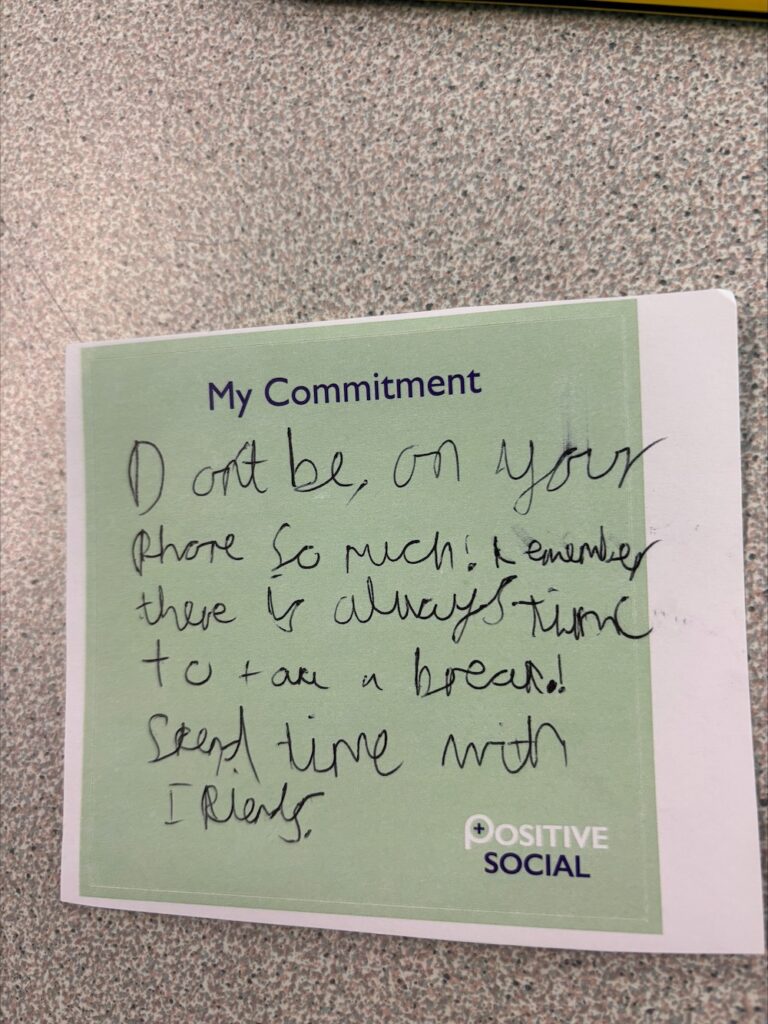 My Commitment
Dont be, on your
Phone so much! Remember
there is always time
to take a break!
Spend time with
Friends.
POSITIVE
SOCIAL